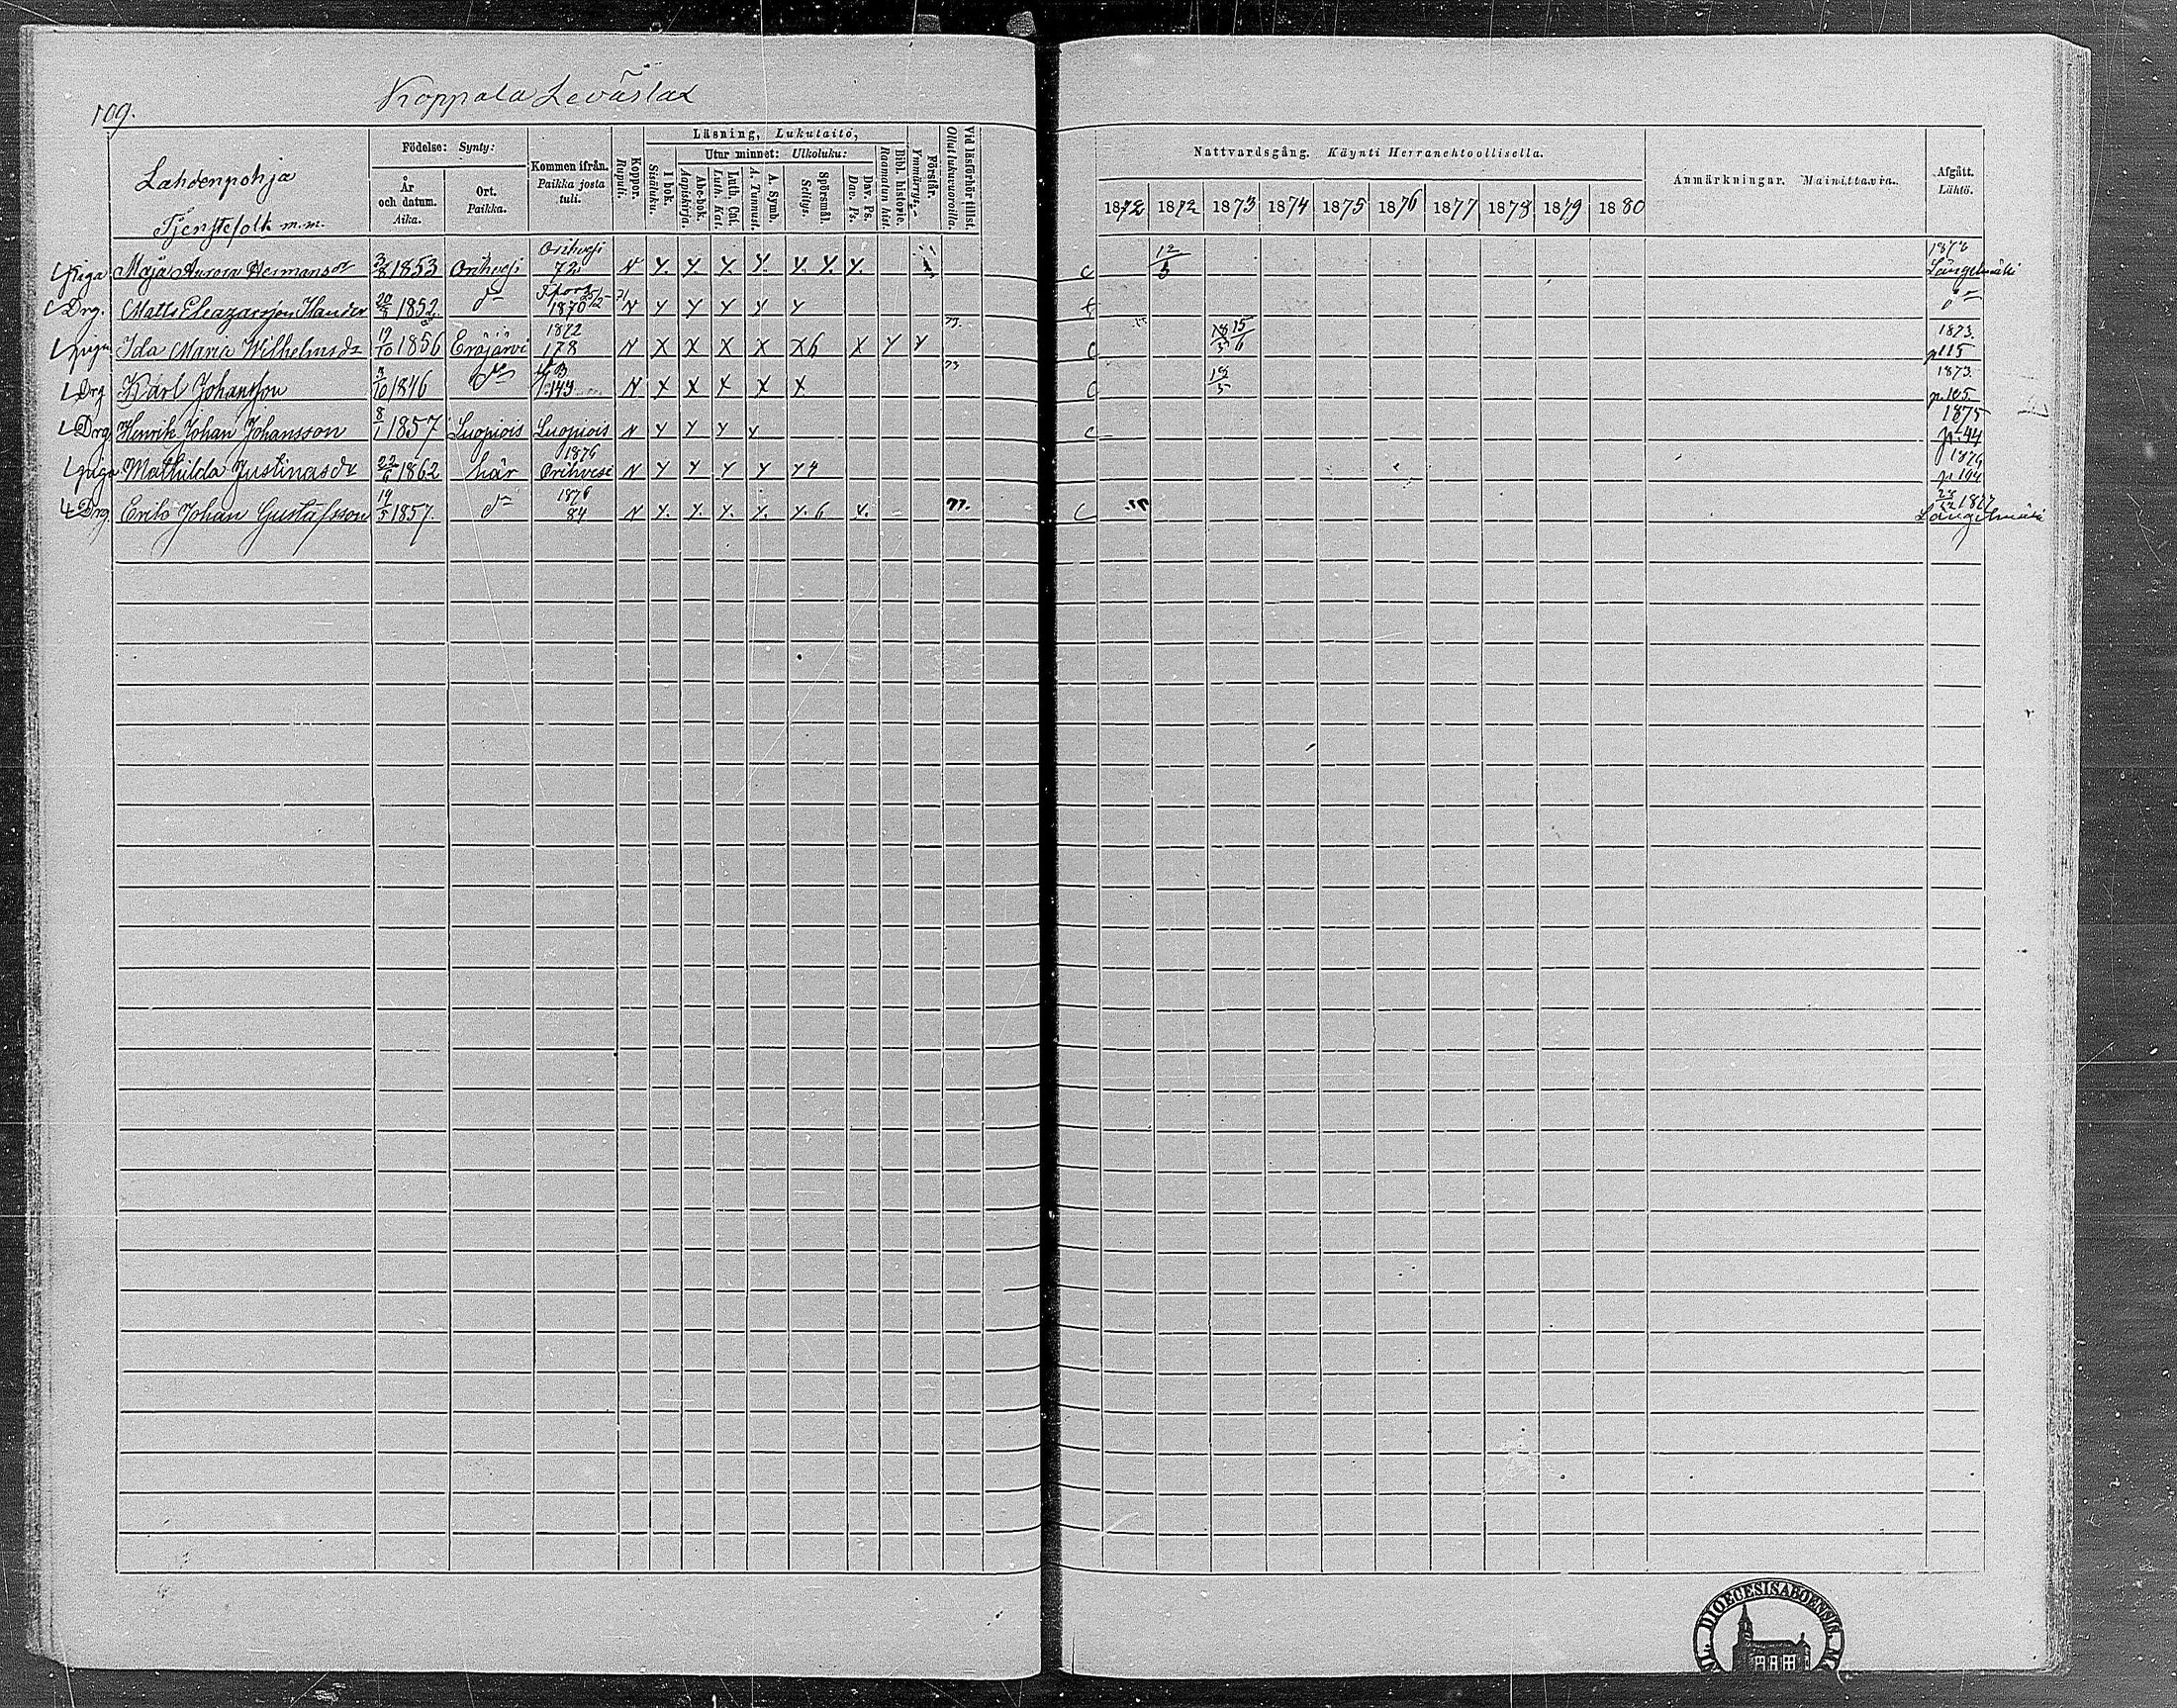 109.
Koppala Leväslax
Lahdenpohja
Tjenstefolk m.m.
Födelse: Synty:
År och datum. Aika.
Ort. Paikka.
Kommen ifrån. Paikka josta tuli.
Koppor. Rupuli.
Läsning, Lukutaito,
I bok. Sisäluku.
Utur minnet: Ulkoluku:
Abc-bok. Aapiskirja.
Luth. Cat. Luth. Kat.
A. Symb. A. Tunnust.
Spörsmål. Selitys.
Dav. Ps. Dav. Ps.
Bibl. historie. Raamatun hist.
Förstår. Ymmärrys.
Vid läsförhör tillst. Ollut lukuvuoroilla.
Nattvardsgång. Käynti Herranehtoollisella.
1872 1872 1873 1874 1875 1876 1877 1878 1879 1880
Anmärkningar. Mainittavia.
Afgått. Lähtö.
Piga Maja Aurora Hermansdr 3/8 1853 Orihvesi Orihvesi 72 N Y. Y. Y. Y. Y. Y. Y. C 12/5 Längelmäki
Drg. Matts Eleazarsson 20 1852 d:o 1870 N Y Y Y Y Y d:o
Ida Maria Wilhelmsdr 19/10 1856 Eräjärvi 1872 178 N X X X X X6 X Y Y 73. C 15/6 1873. p115
Drg Karl Johansson 3/10 1846 d:o p.143 N X X X X X 73 C 18/5 1873. p.105
Drg Henrik Johan Johansson 8/1 1857 Luopiois Luopiois N Y Y Y Y C 1875 p.44
piga Mathilda Justinasdr 22/6 1862 här 1876 Orihvesi N Y Y Y Y Y4 1876 p 194
Drg. Erik Johan Gustafsson 19/5 1857. d:o 1876 84 N Y. Y. Y. Y. Y. 6 Y. 77. C 1877 Längelmäki
DIOECESIS ABOENSIS